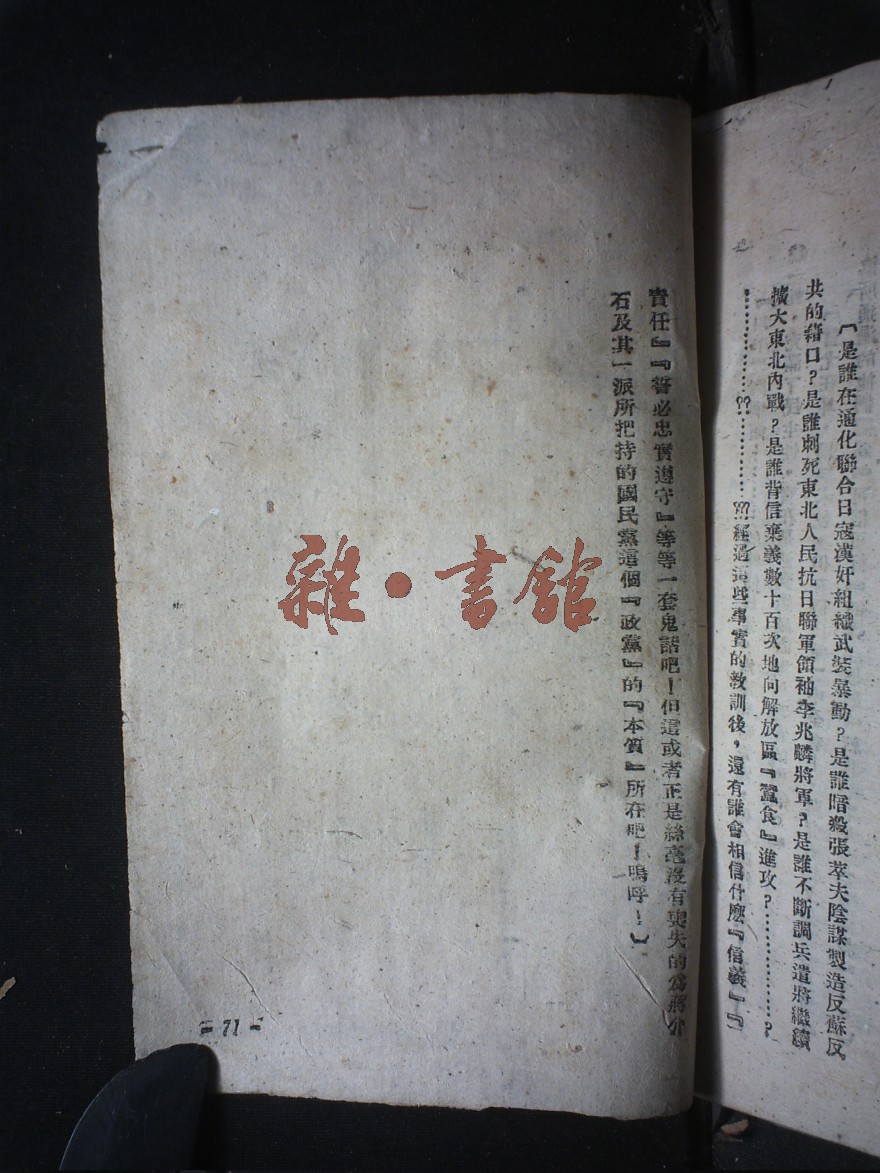 〔是誰在通化聯合日寇漢奸組織武裝暴動？是誰暗殺張莘夫陰謀製造反蘇反
共的藉口？是誰刺死東北人民抗日聯軍領袖李兆麟將軍？是誰不斷調兵遣將繼續
擴大東北內戰？是誰背信棄義數十百次地向解放區『蠶食』進攻？……………？
……………??…………???經過這些事實的教訓後，還有誰會相信什麽『信義』『
責任』『誓必忠實遵守』等等一套鬼話吧！但這或者正是絲毫沒有喪失的為蔣介
石及其一派所把持的國民黨這個『政黨』的『本質』所在吧！嗚呼！〕
- 71 -
雜·書館